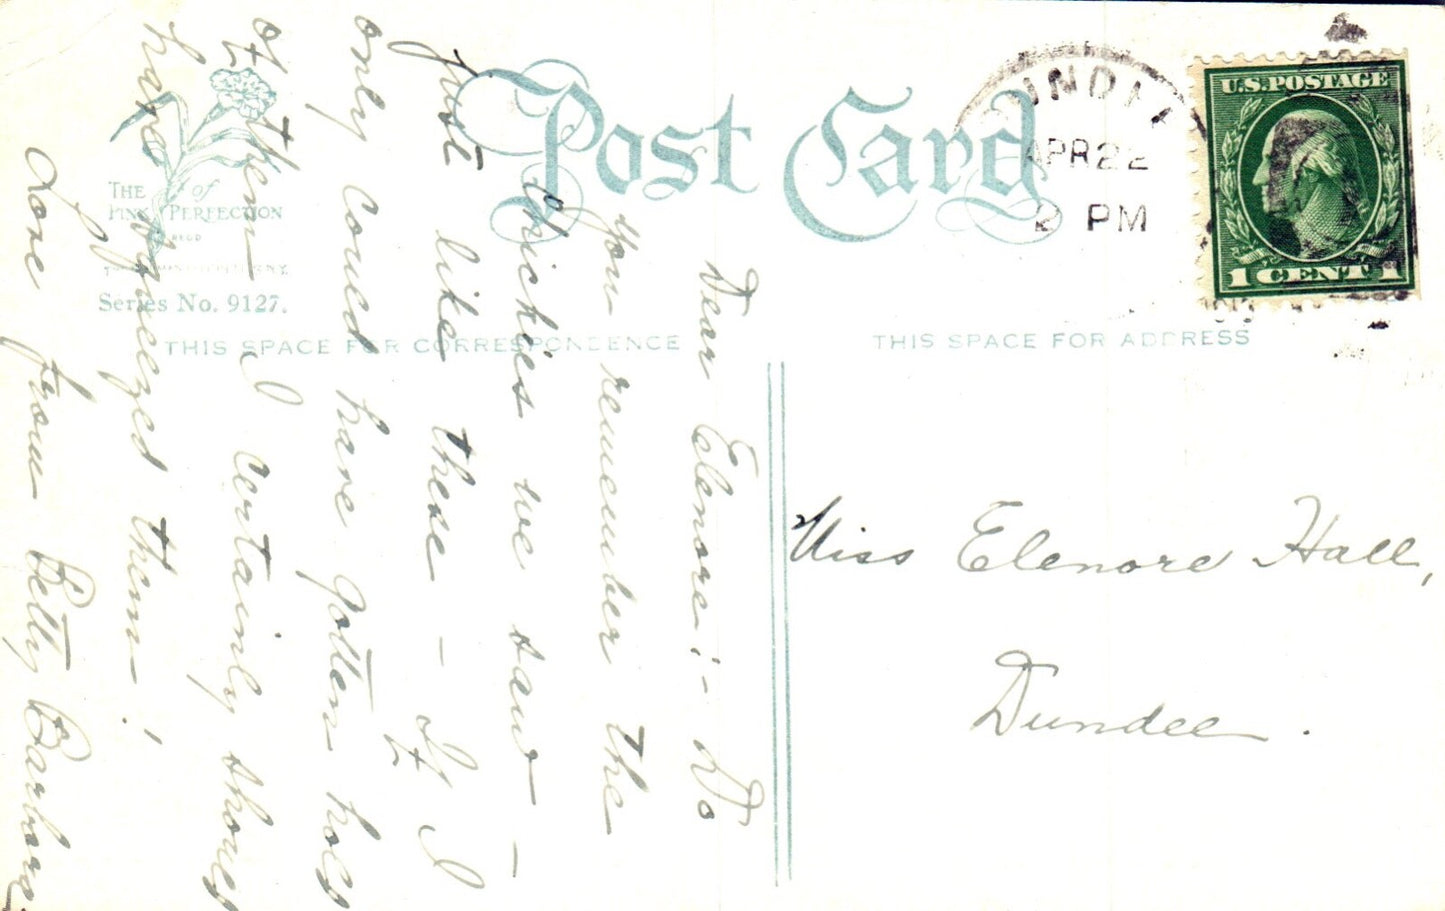 Post Card
THE
PINK of PERFECTION
REGD
Series No. 9127.
THIS SPACE FOR CORRESPONDENCE
THIS SPACE FOR ADDRESS
DUNDEE
APR 22
2 PM
U.S. POSTAGE
1 CENT 1
Dear Elenore:- Do
you remember the
chickies we saw -
just like these - If I
only could have gotten hold
of them I certainly should
have squeezed them!
Love from Betty Barbary
Miss Elenore Hall,
Dundee.